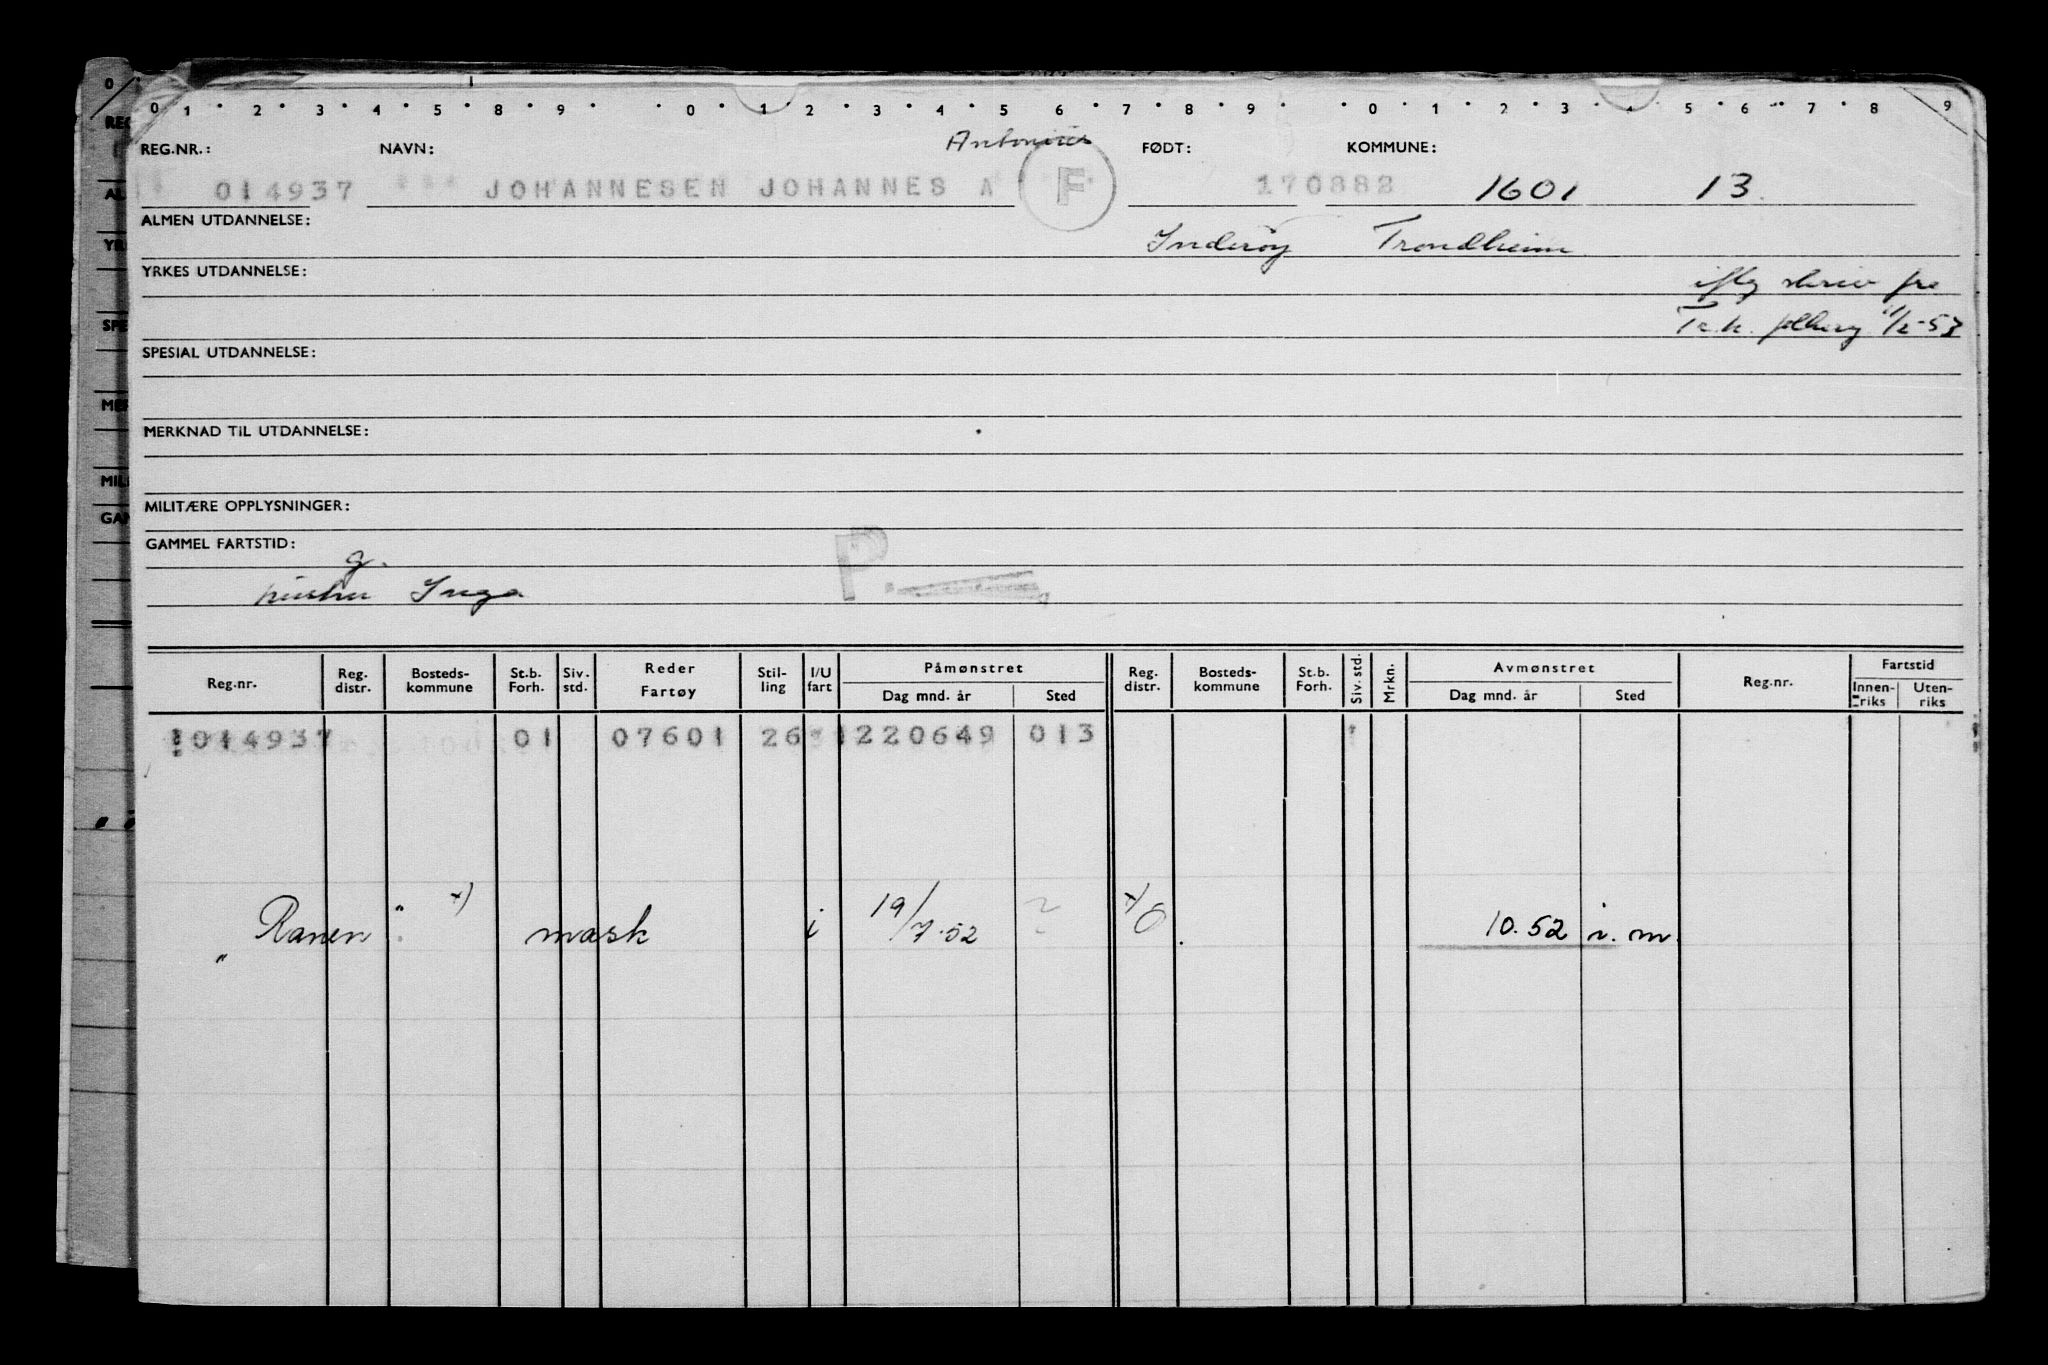 0 1 2 3 4 5 8 9 0 1 2 3 4 5 6 7 8 9 0 1 2 3 4 5 6 7 8 9
Antonius
REG.NR.: NAVN: FØDT: KOMMUNE:
014937 JOHANNESEN JOHANNES A F 170882 1601 13.
ALMEN UTDANNELSE:
Inderøy Trondheim
YRKES UTDANNELSE:
iflg skriv fra
Tr.h. 11/2-53
SPESIAL UTDANNELSE:
MERKNAD TIL UTDANNELSE:
MILITÆRE OPPLYSNINGER:
GAMMEL FARTSTID:
g. P.
hustru Inga
Reg.nr. Reg. distr. Bosteds-kommune St.b. Forh. Siv. std. Reder Fartøy Stil-ling I/U fart Påmønstret Dag mnd. år Sted Reg. distr. Bosteds-kommune St.b. Forh. Siv. std. Mrkn. Avmønstret Dag mnd. år Sted Reg.nr. Fartstid Innen-riks Uten-riks
014937 01 07601 26 1 220649 013
"Ranen" x) mask i 19/7.52 ? x) 10.52 i. m.